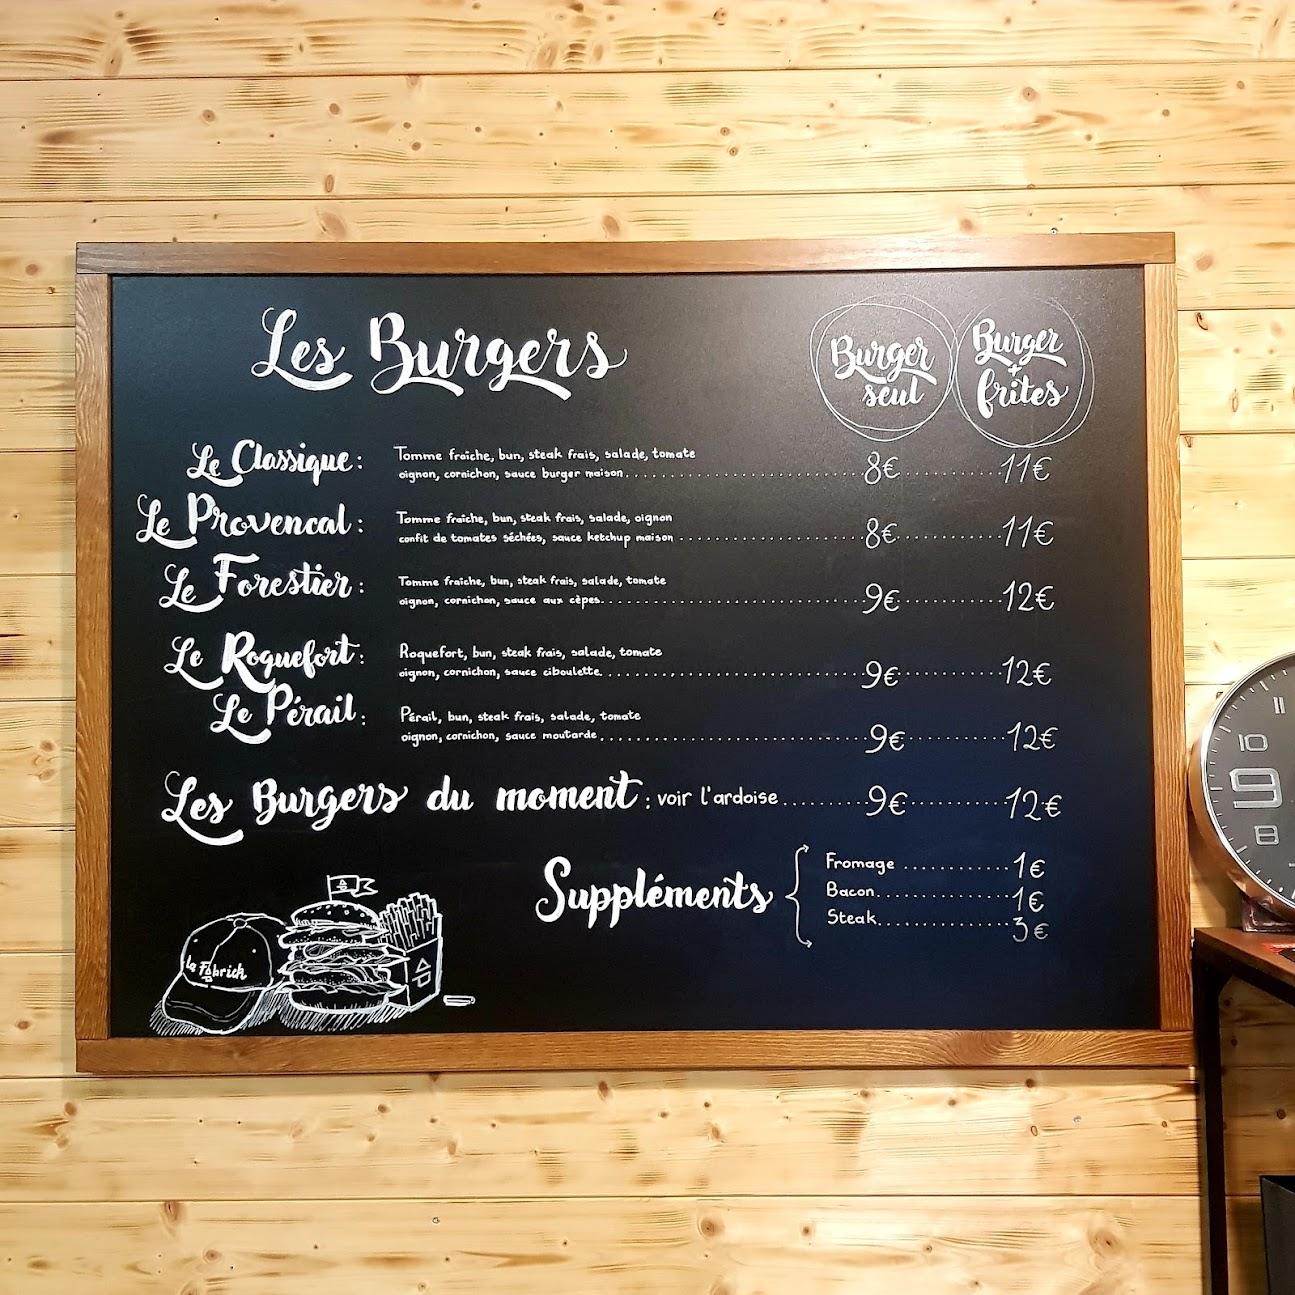 Les Burgers
Burger seul
Burger + frites
Le Classique : Tomme fraîche, bun, steak frais, salade, tomate
oignon, cornichon, sauce burger maison 8€ 11€
Le Provencal : Tomme fraîche, bun, steak frais, salade, oignon
confit de tomates séchées, sauce ketchup maison 8€ 11€
Le Forestier : Tomme fraîche, bun, steak frais, salade, tomate
oignon, cornichon, sauce aux cèpes 9€ 12€
Le Roquefort : Roquefort, bun, steak frais, salade, tomate
oignon, cornichon, sauce ciboulette 9€ 12€
Le Pérail : Pérail, bun, steak frais, salade, tomate
oignon, cornichon, sauce moutarde 9€ 12€
Les Burgers du moment : voir l'ardoise 9€ 12€
Suppléments
Fromage 1€
Bacon 1€
Steak 3€
La Fabrich
11
10
9
8